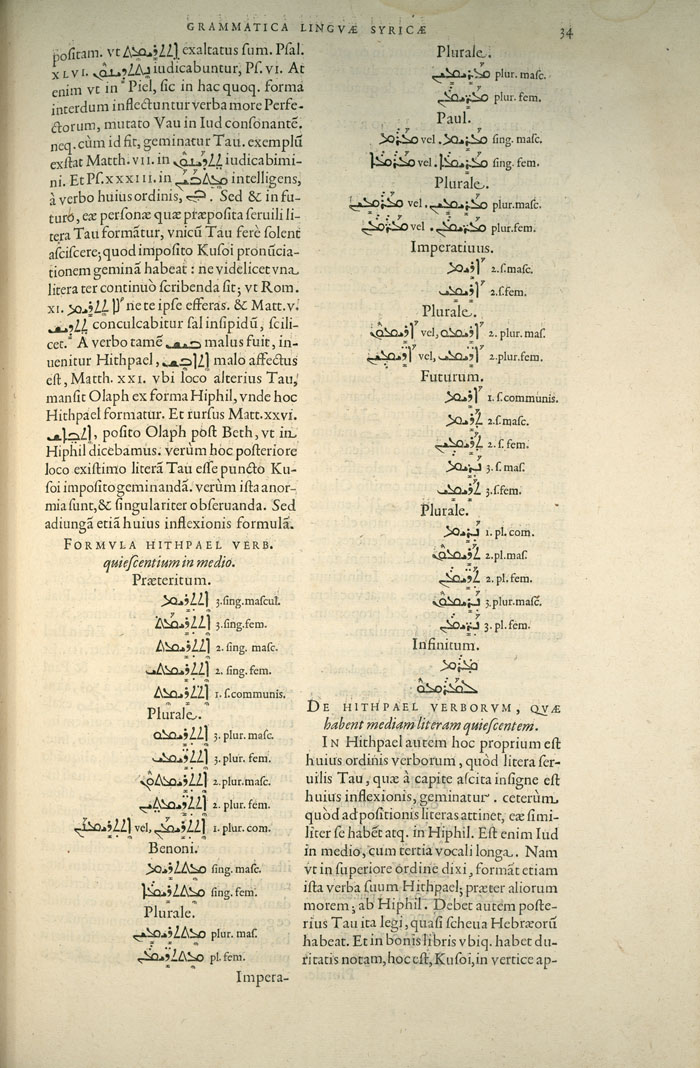 GRAMMATICA LINGVÆ SYRICÆ 34
positam. vt exaltatus sum. Psal.
XLVI. iudicabuntur, Ps. VI. At
enim vt in Piel, sic in hac quoq. forma
interdum inflectuntur verba more Perfe-
ctorum, mutato Vau in Iud consonantē.
neq. cùm id fit, geminatur Tau. exemplū
exstat Matth. VII. in iudicabimi-
ni. Et Ps. XXXIII. in intelligens,
à verbo huius ordinis, . Sed & in fu-
turo, eæ personæ quæ præposita seruili li-
tera Tau formātur, vnicū Tau ferè solent
asciscere; quod imposito Kusoi pronūcia-
tionem geminā habeat : ne videlicet vna
litera ter continuò scribenda sit; vt Rom.
XI. ne te ipse efferas. & Matt. v.
conculcabitur sal insipidū, scili-
cet. A verbo tamē malus fuit, in-
uenitur Hithpael, malo affectus
est, Matth. XXI. vbi loco alterius Tau,
mansit Olaph ex forma Hiphil, vnde hoc
Hithpael formatur. Et rursus Matt. XXVI.
, posito Olaph post Beth, vt in
Hiphil dicebamus. verùm hoc posteriore
loco existimo literā Tau esse puncto Ku-
soi imposito geminandā. verùm ista anor-
mia sunt, & singulariter obseruanda. Sed
adiungā etiā huius inflexionis formulā.
FORMVLA HITHPAEL VERB.
quiescentium in medio.
Præteritum.
ܐܬܬܪܝܡ 3. sing. mascul.
ܐܬܬܪܝܡܬ 3. sing. fem.
ܐܬܬܪܝܡܬ 2. sing. masc.
ܐܬܬܪܝܡܬܝ 2. sing. fem.
ܐܬܬܪܝܡܬ 1. s. communis.
Plurale.
ܐܬܬܪܝܡܘ 3. plur. masc.
ܐܬܬܪܝܡܝ 3. plur. fem.
ܐܬܬܪܝܡܬܘܢ 2. plur. masc.
ܐܬܬܪܝܡܬܝܢ 2. plur. fem.
vel, 1. plur. com.
Benoni.
ܡܬܬܪܝܡ sing. masc.
ܡܬܬܪܝܡܐ sing. fem.
Plurale.
ܡܬܬܪܝܡܝܢ plur. mas.
ܡܬܬܪܝܡܢ pl. fem.
Impera-
Plurale.
plur. masc.
plur. fem.
Paul.
vel. sing. masc.
vel. sing. fem.
Plurale.
vel, plur. masc.
vel, plur. fem.
Imperatiuus.
ܐܪܝܡ 2. s. masc.
ܐܪܝܡܝ 2. s. fem.
Plurale.
vel, 2. plur. mas.
vel, 2. plur. fem.
Futurum.
ܐܪܝܡ 1. s. communis.
ܬܪܝܡ 2. s. masc.
ܬܪܝܡܝܢ 2. s. fem.
ܢܪܝܡ 3. s. mas.
3. s. fem.
Plurale.
ܢܪܝܡ 1. pl. com.
ܬܪܝܡܘܢ 2. pl. mas.
ܬܪܝܡܢ 2. pl. fem.
ܢܪܝܡܘܢ 3. plur. masc.
ܢܪܝܡܢ 3. pl. fem.
Infinitum.
DE HITHPAEL VERBORVM, QVÆ
habent mediam literam quiescentem.
IN Hithpael autem hoc proprium est
huius ordinis verborum, quòd litera ser-
uilis Tau, quæ à capite ascita insigne est
huius inflexionis, geminatur. ceterùm
quòd ad positionis literas attinet, eæ simi-
liter se habēt atq. in Hiphil. Est enim Iud
in medio, cum tertia vocali longa. Nam
vt in superiore ordine dixi, formāt etiam
ista verba suum Hithpael, præter aliorum
morem, ab Hiphil. Debet autem poste-
rius Tau ita legi, quasi scheua Hebræorū
habeat. Et in bonis libris vbiq. habet du-
ritatis notam, hoc est, Kusoi, in vertice ap-